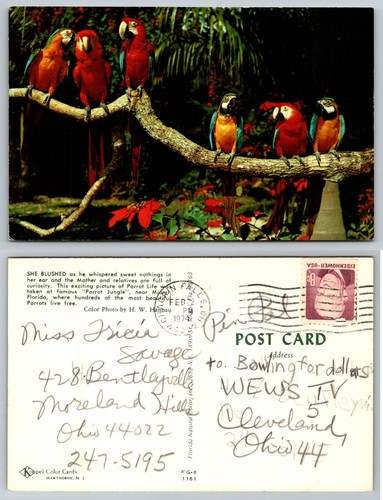 SHE BLUSHED as he whispered sweet nothings in
her ear and the Mother and relatives are full of
curiosity. This exciting picture of Parrot Life w
taken at famous "Parrot Jungle", near Mia
Florida, where hundreds of the most beau
Parrots live free.
Color Photo by H. W. Hannau
Miss Tricia
Savage
428 Bentleyville
Moreland Hills
Ohio 44022
247-5195
Koppel Color Cards
HAWTHORNE, N. J.
PG-8
1161
FALLS, OH
FEB
PM
1974
EISENHOWER·USA
Pin Pal
POST CARD
Address
to Bowling for dollars
WEWS TV
5
Cleveland
Ohio 44